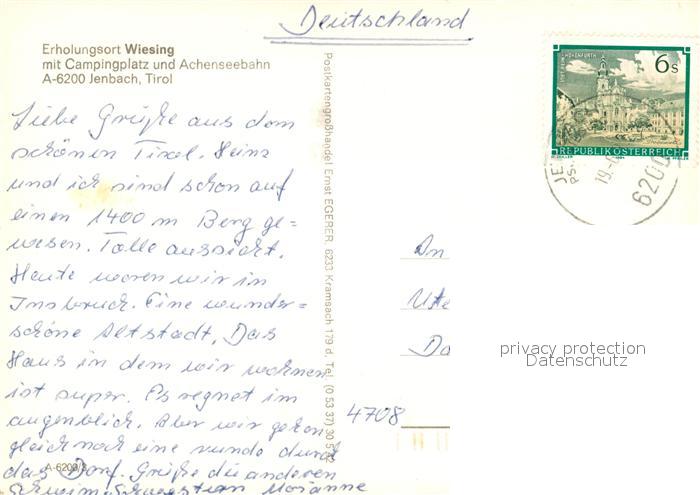 Deutschland
Erholungsort Wiesing
mit Campingplatz und Achenseebahn
A-6200 Jenbach, Tirol
Liebe Grüße aus dem
schönen Tirol. Heinz
und ich sind schon auf
einen 1400 m Berg ge=
wesen. Tolle aussicht.
Heute waren wir in
Insbruck. Eine wunder=
schöne Altstadt, Das
Haus in dem wir wohnen
ist super. Es regnet im
augenblick. Aber wir gehen
gleich noch eine runde durch
das Dorf. Grüße die anderen
Marianne
A-6200/3
Postkartengroßhandel Ernst EGERER, 6233 Kramsach 179 d, Tel. (0 53 37) 30 5
6 S
REPUBLIK ÖSTERREICH
19.
6200
An
Ute
Da
4708
privacy protection
Datenschutz